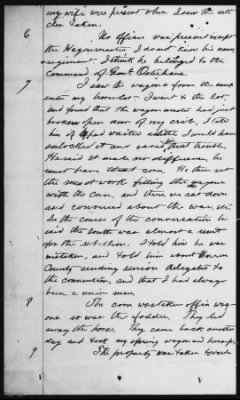 my wife were present when I saw the arti
cles taken.
6 No officer was present except
the Wagonmaster, I do not know his name
regiment. I think he belonged to the
Command of Genl. Osterhaus.
7 I saw the wagons from the camp
enter my horse-lot. I went to the lot,
and found that the wagon master had just
broken open one of my crib, I told
him if he had waited a little I would have
unlocked it and saved that trouble,
He said it made no difference, he
must have that corn. He then set
the men at work filling the wagons
with the corn, and then we sat down
and conversed about the war, etc.
In the course of the conversation he
said the South was almost a unit
for the rebellion. I told him he was
mistaken, and told him about Warren
County sending union delegates to
the convention, and that I had always
been a union man.
8 The corn was taken off in wag
ons so was the fodder. They led
away the horse. They came back another
day and took my spring wagon and harness.
9 The property was taken towards